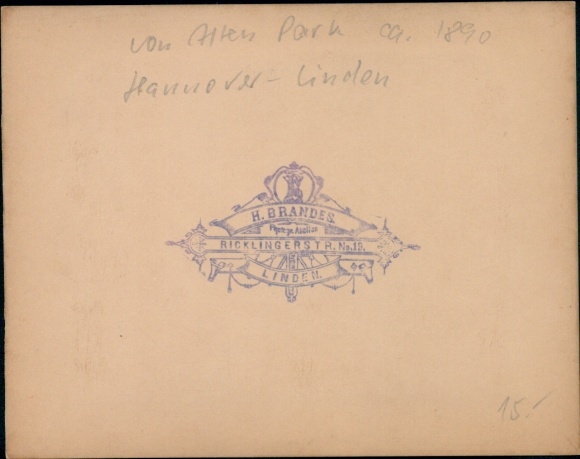 von Alten Park ca. 1890
Hannover-Linden
H. BRANDES.
Photogr. Atelier
RICKLINGERSTR. No. 12.
LINDEN.
15.-